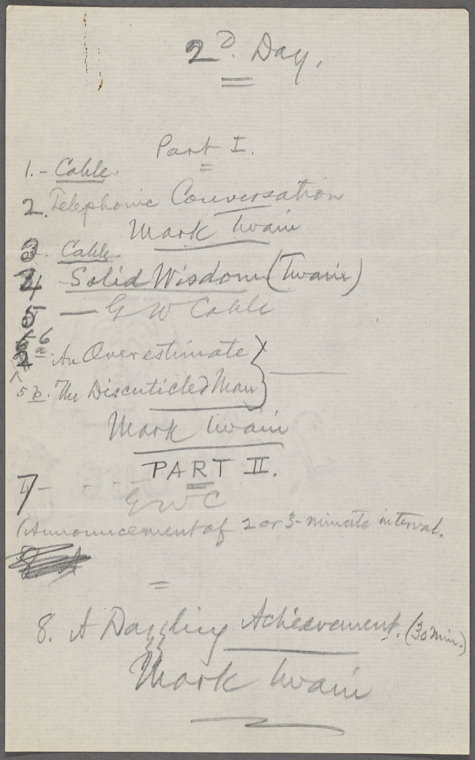 2D. Day.
Part I.
1. - Cable.
2. Telephonic Conversation
Mark Twain
3. Cable.
4 Solid Wisdom (Twain)
5 — G W Cable
6 a. An Overestimate
b. The Discuticled Man
Mark Twain
PART II.
7 -
G W C
(Announcement of 2 or 3-minute interval.
8. A Dazzling Achievement. (30 min.)
Mark Twain